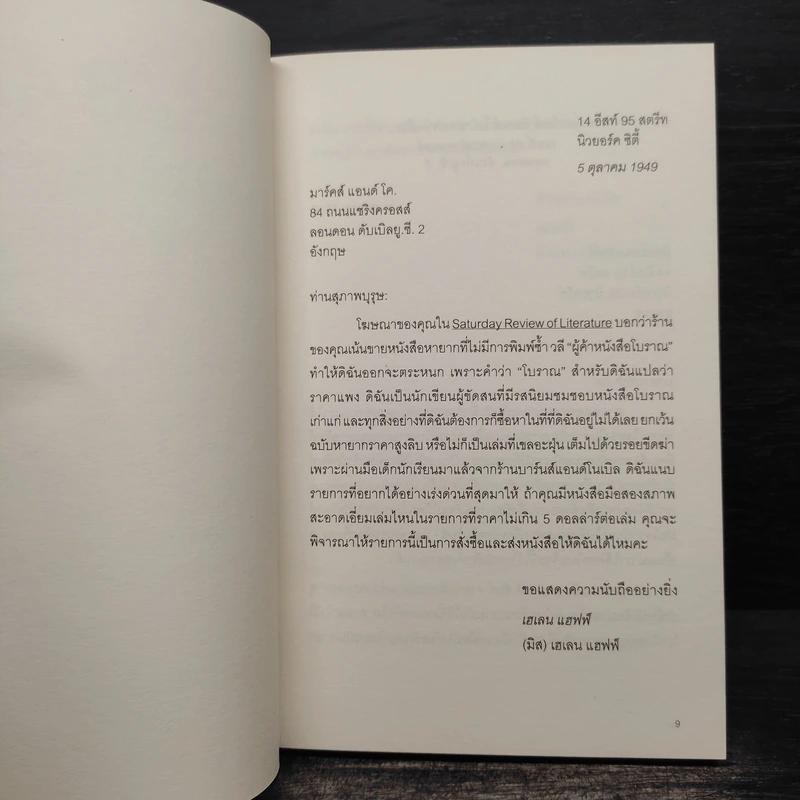 14 อีสท์ 95 สตรีท
นิวยอร์ค ซิตี้
5 ตุลาคม 1949
มาร์คส์ แอนด์ โค.
84 ถนนแชริงครอสส์
ลอนดอน ดับเบิลยู.ซี. 2
อังกฤษ
ท่านสุภาพบุรุษ:
โฆษณาของคุณใน Saturday Review of Literature บอกว่าร้าน
ของคุณเน้นขายหนังสือหายากที่ไม่มีการพิมพ์ซ้ำ วลี “ผู้ค้าหนังสือโบราณ”
ทำให้ดิฉันออกจะตระหนก เพราะคำว่า “โบราณ” สำหรับดิฉันแปลว่า
ราคาแพง ดิฉันเป็นนักเขียนผู้ขัดสนที่มีรสนิยมชมชอบหนังสือโบราณ
เก่าแก่ และทุกสิ่งอย่างที่ดิฉันต้องการก็ซื้อหาในที่ที่ดิฉันอยู่ไม่ได้เลย ยกเว้น
ฉบับหายากราคาสูงลิบ หรือไม่ก็เป็นเล่มที่เขลอะฝุ่น เต็มไปด้วยรอยขีดฆ่า
เพราะผ่านมือเด็กนักเรียนมาแล้วจากร้านบาร์นส์แอนด์โนเบิล ดิฉันแนบ
รายการที่อยากได้อย่างเร่งด่วนที่สุดมาให้ ถ้าคุณมีหนังสือมือสองสภาพ
สะอาดเอี่ยมเล่มไหนในรายการที่ราคาไม่เกิน 5 ดอลล่าร์ต่อเล่ม คุณจะ
พิจารณาให้รายการนี้เป็นการสั่งซื้อและส่งหนังสือให้ดิฉันได้ไหมคะ
ขอแสดงความนับถืออย่างยิ่ง
เฮเลน แฮฟฟ์
(มิส) เฮเลน แฮฟฟ์
9